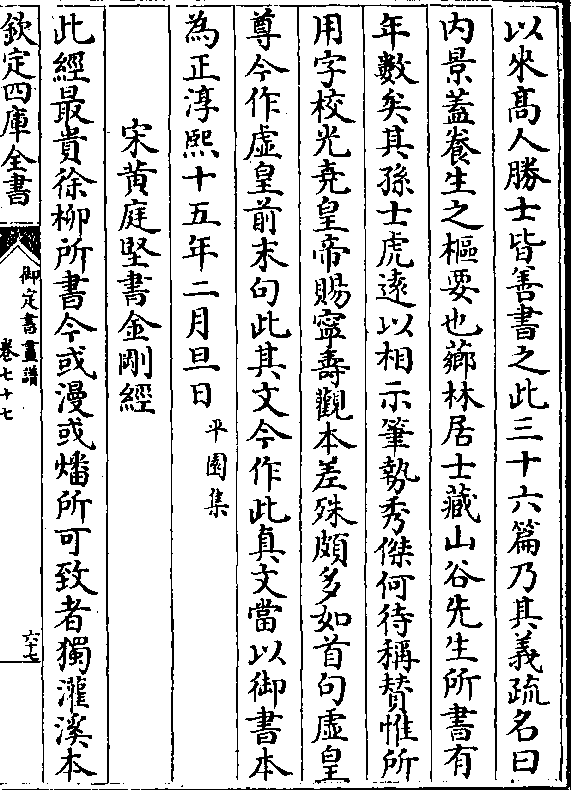 以來髙人勝士皆善書之此三十六篇乃其義疏名曰
内景蓋養生之樞要也薌林居士藏山谷先生所書有
年數矣其孫士虎逺以相示筆勢秀傑何待稱賛惟所
用字校光堯皇帝賜寧壽觀本差殊頗多如首句虛皇
尊今作虛皇前末句此其文今作此真文當以御書本
為正淳熙十五年二月旦日 平園集
宋黄庭堅書金剛經
此經最貴徐柳所書今或漫或燔所可致者獨灌溪本
欽定四庫全書
御定書畫譜
卷七十七
六十七